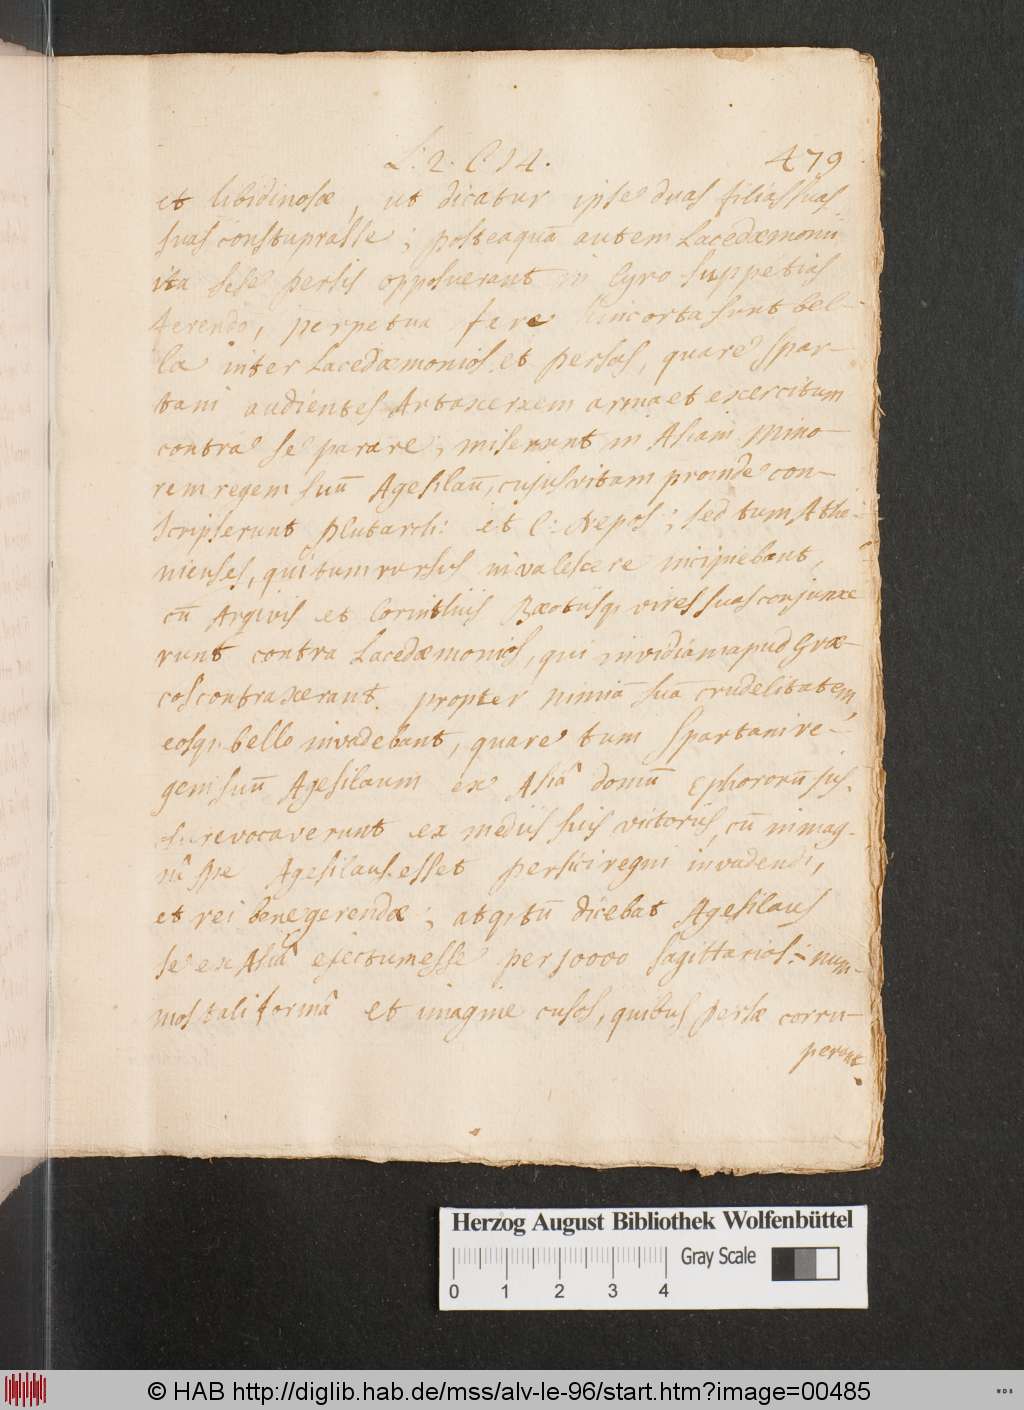 L. 2. C. 14. 479
et libidinosæ, ut dicatur ipse duas filias suas
suas constuprasse; posteaquā autem Lacedæmonii
ita sese persis opposuerant in Cyro suppetias
ferendo, perpetua fere hinc orta sunt bel-
la inter Lacedæmonios et persas, quare spar-
tani audientes Artaxerxem arma et exercitum
contra se parare, miserunt in Asiam Mino-
rem regem suū Agesilaū, cujus vitam proinde con-
scripserunt Plutarch: et C: Nepos; sed tum Athe-
nienses, qui tum rursus invalescere incipiebant,
cū Argivis et Corinthiis Bœotiisq; vires suas conjunxe
runt contra Lacedæmonios, qui invidiam apud Græ-
cos contraxerant propter nimiā suā crudelitatem,
eosq; bello invadebant, quare tum Spartani re-
gem suū Agesilaum ex Asiâ domū Ephororū jus-
su revocaverunt ex mediis suis victoriis, cū in mag-
nâ spe Agesilaus esset persici regni invadendi,
et rei bene gerendæ; atq; tū dicebat Agesilaus
se ex Asiâ ejectum esse per 10000 sagittarios: num-
mos tali formâ et imagine cusos, quibus persæ corru-
perunt
Herzog August Bibliothek Wolfenbüttel
Gray Scale
0 1 2 3 4
© HAB http://diglib.hab.de/mss/alv-le-96/start.htm?image=00485